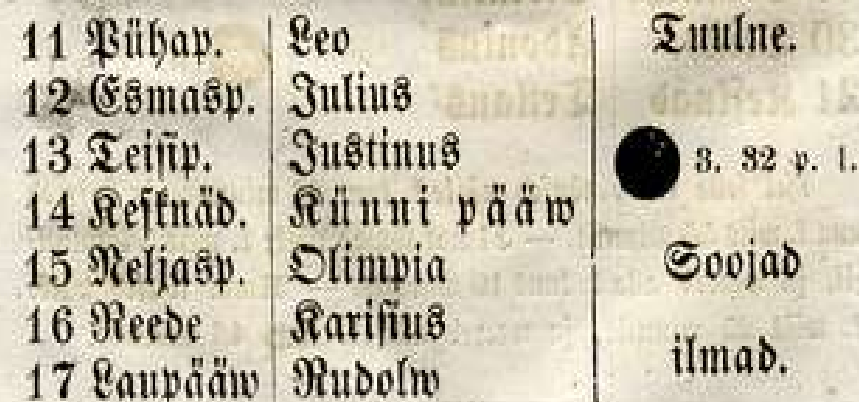 11 Pühap. Leo Tuulne.
12 Esmasp. Julius
13 Teisip. Justinus 3. 32 p. l.
14 Kesknäd. Künni pääw
15 Neljasp. Olimpia Soojad
16 Reede Karisius
17 Laupääw Rudolw ilmad.